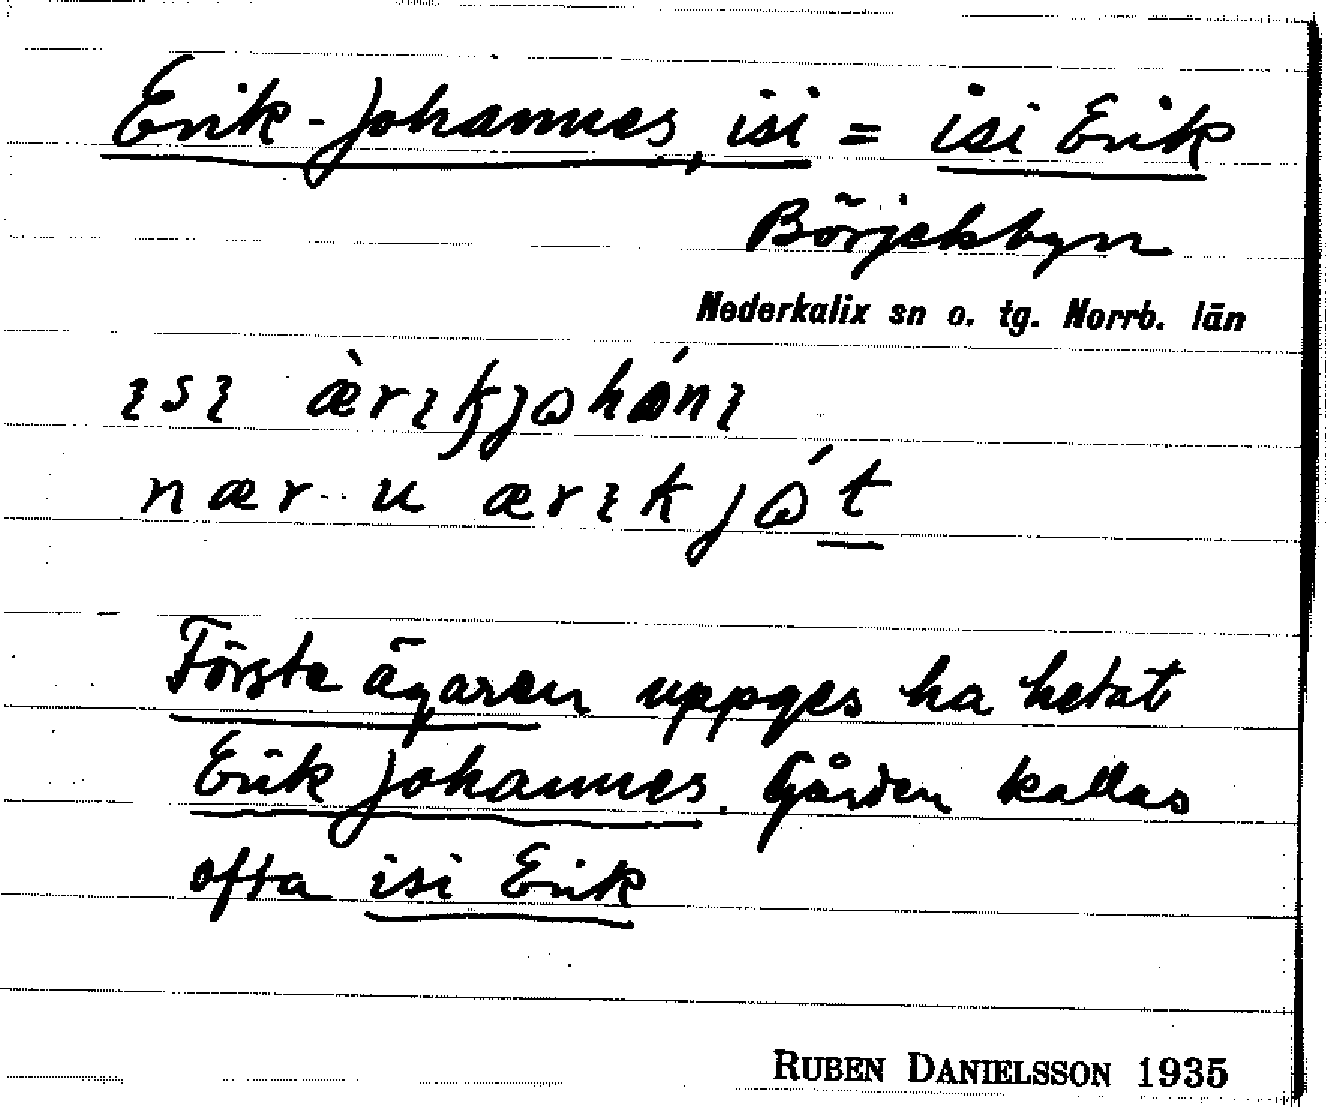 Erik-Johannes, isi = isi Erik
Börjelsbyn
Nederkalix sn o. tg. Norrb. län
ısı æ̀rıkjɷhánı
nær u ærıkjɷ́t
Förste ägaren uppges ha hetat
Erik Johannes. Gården kallas
ofta isi Erik
RUBEN DANIELSSON 1935